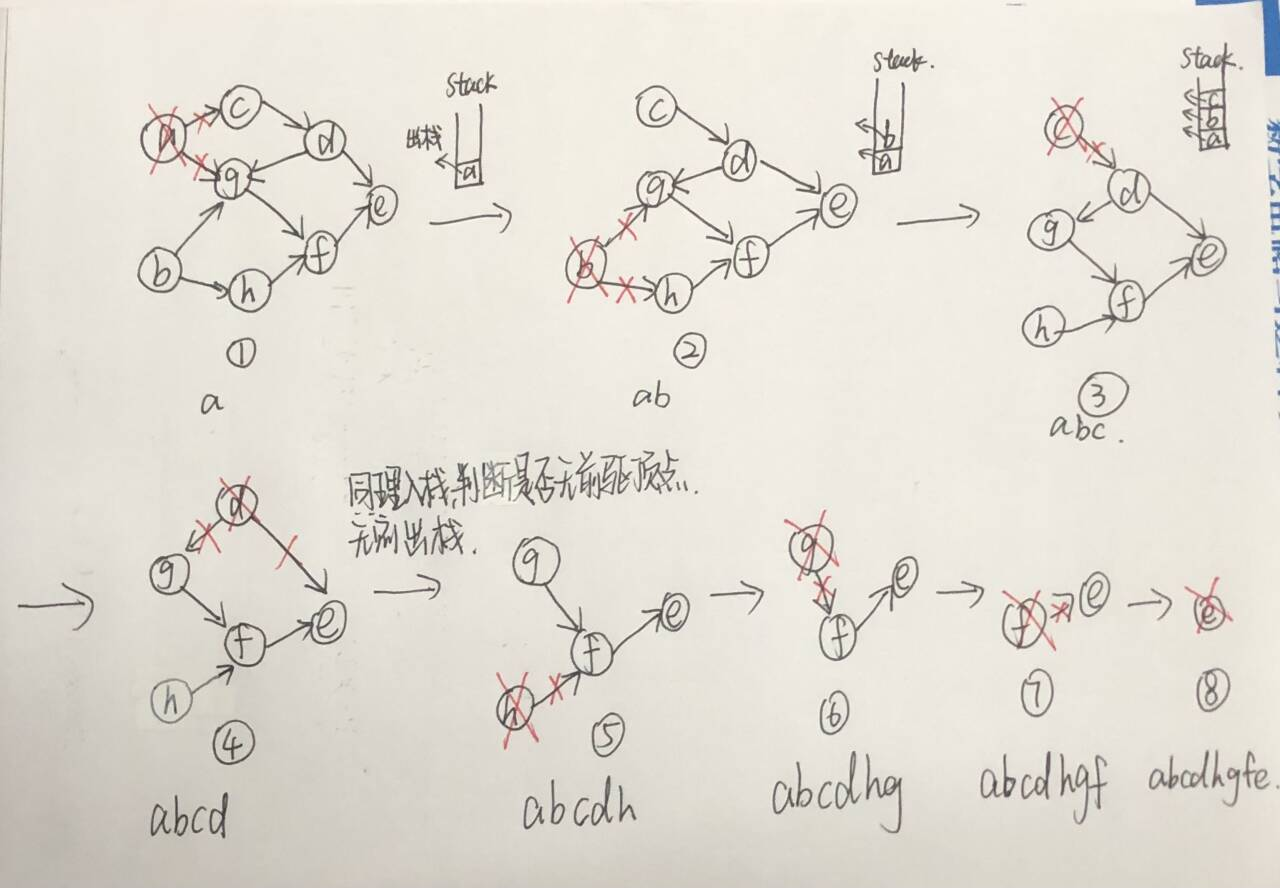 stack
a
c
d
出栈
a
g
e
b
h
f
①
a
stack.
c
b
a
d
g
e
b
h
f
②
ab
stack.
c
b
a
c
d
g
e
f
h
③
abc.
同理入栈,判断是否无前驱顶点.
无则出栈.
d
g
f
e
h
④
abcd
g
f
e
h
⑤
abcdh
g
e
f
⑥
abcdhg
f
e
⑦
abcdhgf
e
⑧
abcdhgfe.